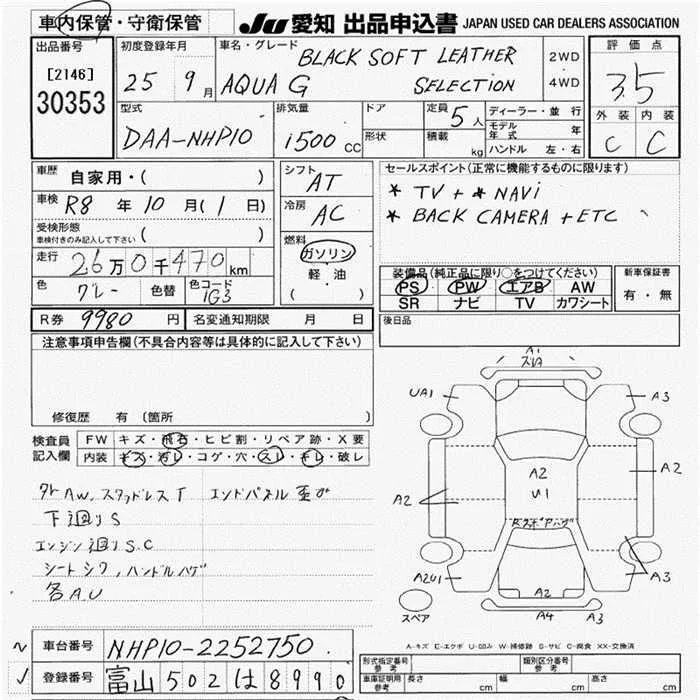 車内保管・守衛保管
JU 愛知 出品申込書 JAPAN USED CAR DEALERS ASSOCIATION
出品番号
[2146]
30353
初度登録年月
25 9月
車名・グレード
BLACK SOFT LEATHER
AQUA G SELECTION
2WD
4WD
評価点
3.5
外装 内装
C C
型式
DAA-NHP10
排気量
1500 CC
ドア
形状
定員 5人
積載 kg
ディーラー・並行
モデル年式 年
ハンドル 左・右
車歴
自家用・( )
車検 R8 年 10 月 ( 1 日)
受検形態
車検付きのみ記入して下さい ( )
走行 26万0千470km
色 グレー 色替 色コード 1G3
シフト AT
冷房 AC
燃料
ガソリン
軽・油
( )
セールスポイント(正常に機能するものに限ります)
* TV + * NAVi
* BACK CAMERA + ETC
装備品(純正品に限り○をつけてください)
PS PW エアB AW
SR ナビ TV カワシート
新車保証書
有・無
R券 9980 円 名変通知期限 月 日
後日品
注意事項申告欄(不具合内容等は具体的に記入して下さい)
修復歴 有 (箇所
検査員記入欄
FW キズ・飛石・ヒビ割・リペア跡・X要
内装 キズ・汚レ・コゲ・穴・スレ・キレ・破レ
外AW、スタッドレスT エンドパネル歪ミ
下廻りS
エンジン廻りS.C
シートシワ,ハンドルハゲ
各A.U
A1
ズレA
UA1
A3
A2
A2
U1
A2
A2U1
A3
A2
A4
A3
スペア
A-キズ E-エクボ U-凹み W-補修跡 S-サビ C-腐食 XX-交換済
車台番号 NHP10-2252750
登録番号 富山502は8990
形式指定番号
参考
類別区分番号
参考
車庫証明用
参考
長さ cm 幅 cm 高さ cm